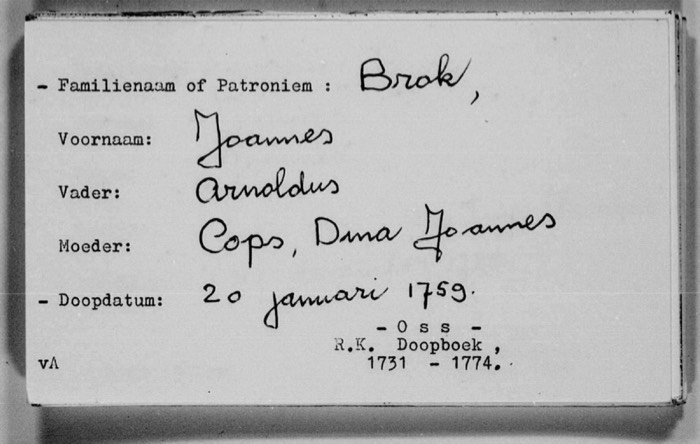 - Familienaam of Patroniem : Brok,
Voornaam: Joannes
Vader: Arnoldus
Moeder: Cops, Dina Joannes
- Doopdatum: 20 januari 1759.
- O s s -
R.K. Doopboek ,
vA 1731 - 1774.